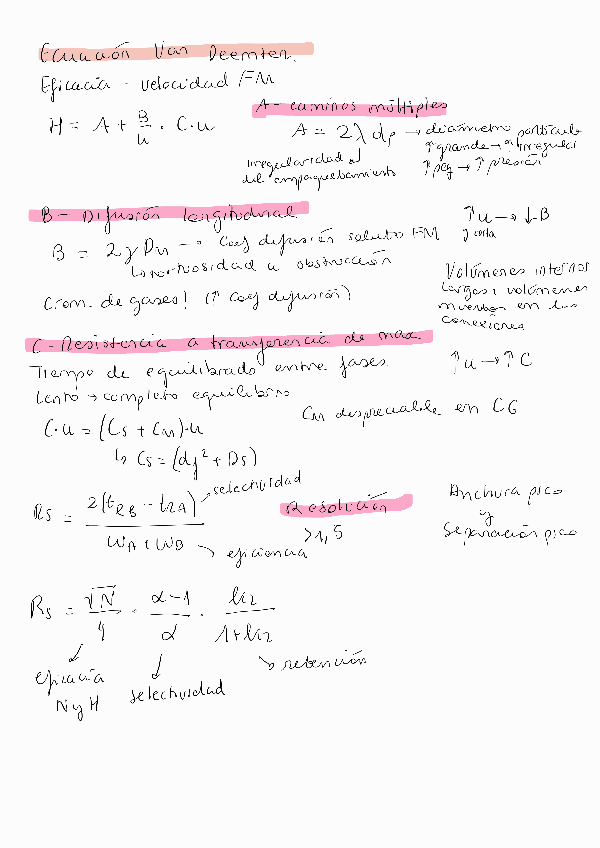 Ecuación Van Deemter.
Eficacia - velocidad FM
H = A + B/u · C·u
A - caminos múltiples
A = 2λ dp → diámetro partícula
↑grande → irregular
↑peq → ↑ presión
Irregularidad
del empaquetamiento
B - Difusión longitudinal
B = 2γ DM → Coef difusión soluto FM
↳ tortuosidad u obstrucción
Crom. de gases! (↑ Coef difusión)
↑u → ↓B
y corta
Volúmenes internos
largos i volúmenes
muertos en las
conexiones
C - Resistencia a transferencia de masa
Tiempo de equilibrado entre fases
Lento → completo equilibrio
↑u → ↑C
CM despreciable en CG
C·u = (Cs + CM)·u
↳ Cs = (df² + Ds)
Rs = 2(tRB - tRA) / WA + WB
selectividad
eficiencia
Resolución
>1,5
Anchura pico
y
Separación pico
Rs = √N/4 · α-1/α · k2/1+k2
eficacia
N y H
selectividad
retención